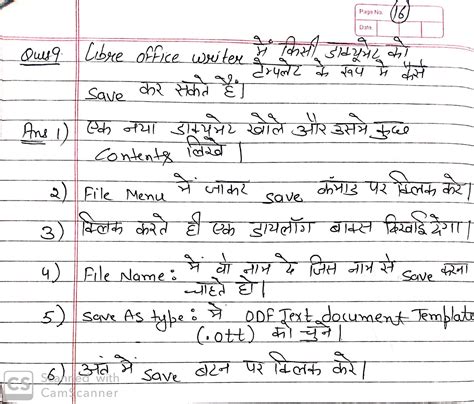 Page No. 16
Date
Ques9 Libre office writer में किसी डाक्यूमेंट को
टेम्पलेट के रूप मे कैसे
save कर सकते हैं।
Ans 1) एक नया डाक्यूमेंट खोले और उसमे कुछ
Contents लिखे।
2) File Menu में जाकर save कंमाड पर क्लिक करे।
3) क्लिक करते ही एक डायलॉग बाक्स दिखाई देगा।
4) File Name: में वो नाम दे जिस नाम से save करना
चाहते हो।
5) Save As type: में ODF Text document Template
(.ott) को चुने।
6) अंत में save बटन पर क्लिक करे।
CS Scanned with
CamScanner